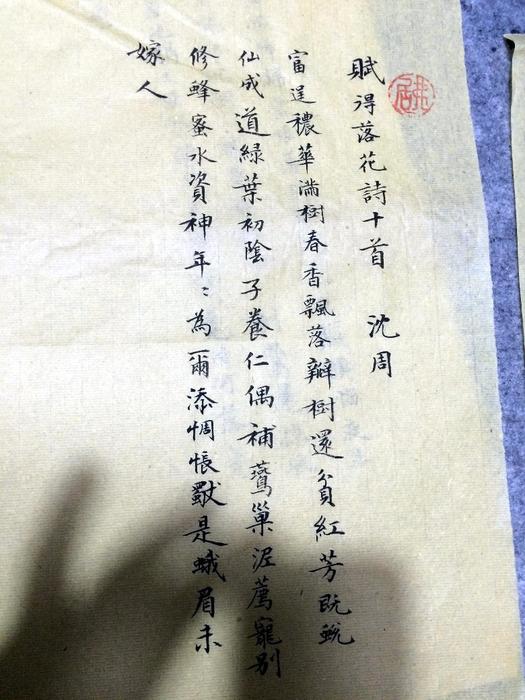 賦得落花詩十首 沈周
富逞穠華滿樹春香飄落瓣樹還貧紅芳既蛻
仙成道綠葉初陰子養仁偶補鷰巢泥薦寵別
修蜂蜜水資神年〻為爾添惆悵獨是蛾眉未
嫁人